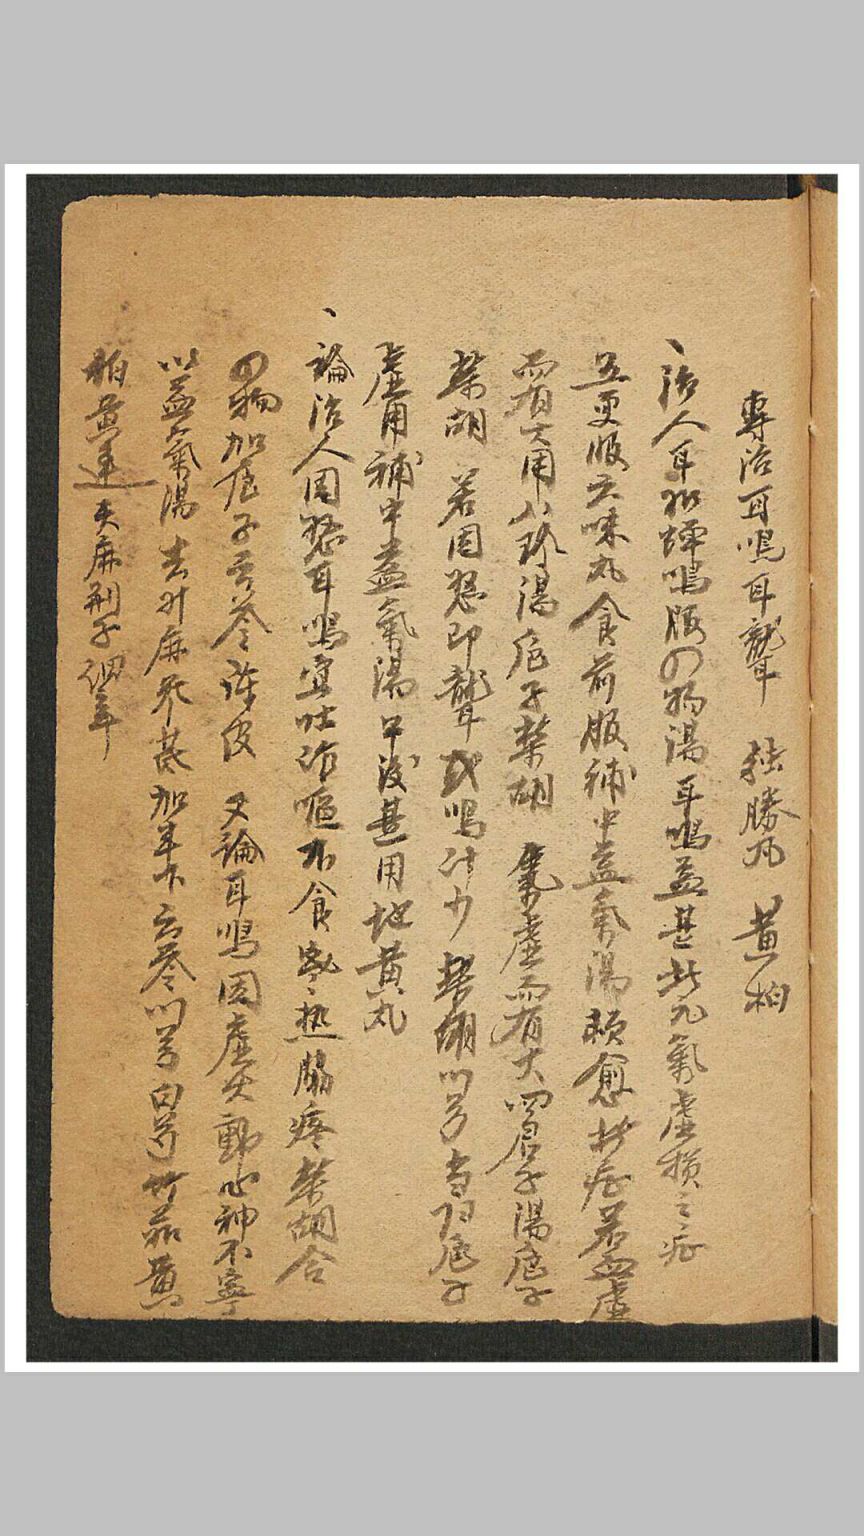 專治耳鳴耳聾 獨勝丸 黃柏
、治人耳如蟬鳴服四物湯耳鳴益甚此元氣虛損之症
五更服六味丸食前服補中益氣湯頓愈此症若血虛
而有火用八珍湯梔子柴胡 氣虛而有火四君子湯梔子
柴胡 若因怒即聾或鳴 柴胡川芎当歸梔子
虛用補中益氣湯 甚用地黃丸
、論治人因怒耳鳴 吐 嘔不食寒热脇疼柴胡合
四物加梔子 苓陳皮 又論耳鳴因虛火動心神不寧
以益氣湯去升麻 芪加 苓川芎白芍 黃
柏黃連天麻荆子